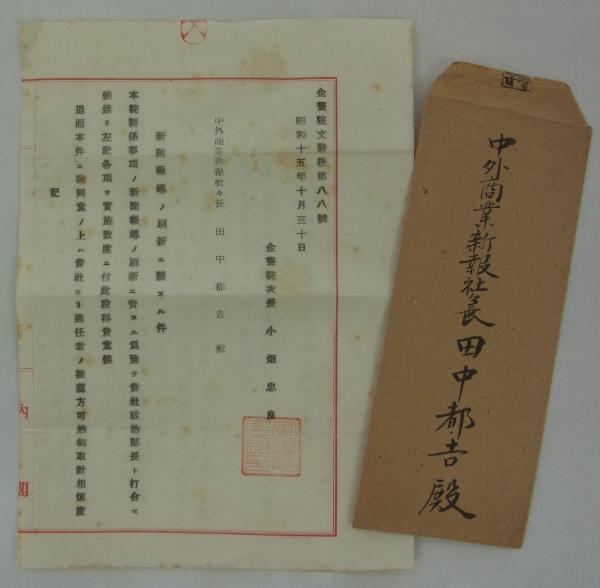 企畫院文發後第八八號
昭和十五年十月三十日
企畫院次長 小畑忠良
中外商業新報社々長 田中都吉殿
新聞報導ノ刷新ニ關スル件
本院關係事項ノ新聞報導ノ刷新ニ資スル爲豫テ貴社政治部長ト打合セ
候通リ左記各項ヲ實施致度ニ付此段得貴意候
追而本件ニ御同意ノ上ハ貴社ヨリ適任者ノ推薦方可然御取計相煩度
記
内閣
中外商業新報社長 田中都吉殿